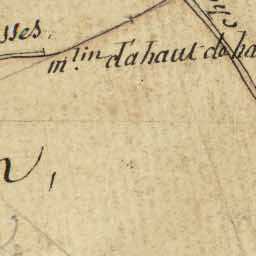 sses.
m.lin d'ahaut de ha
n,